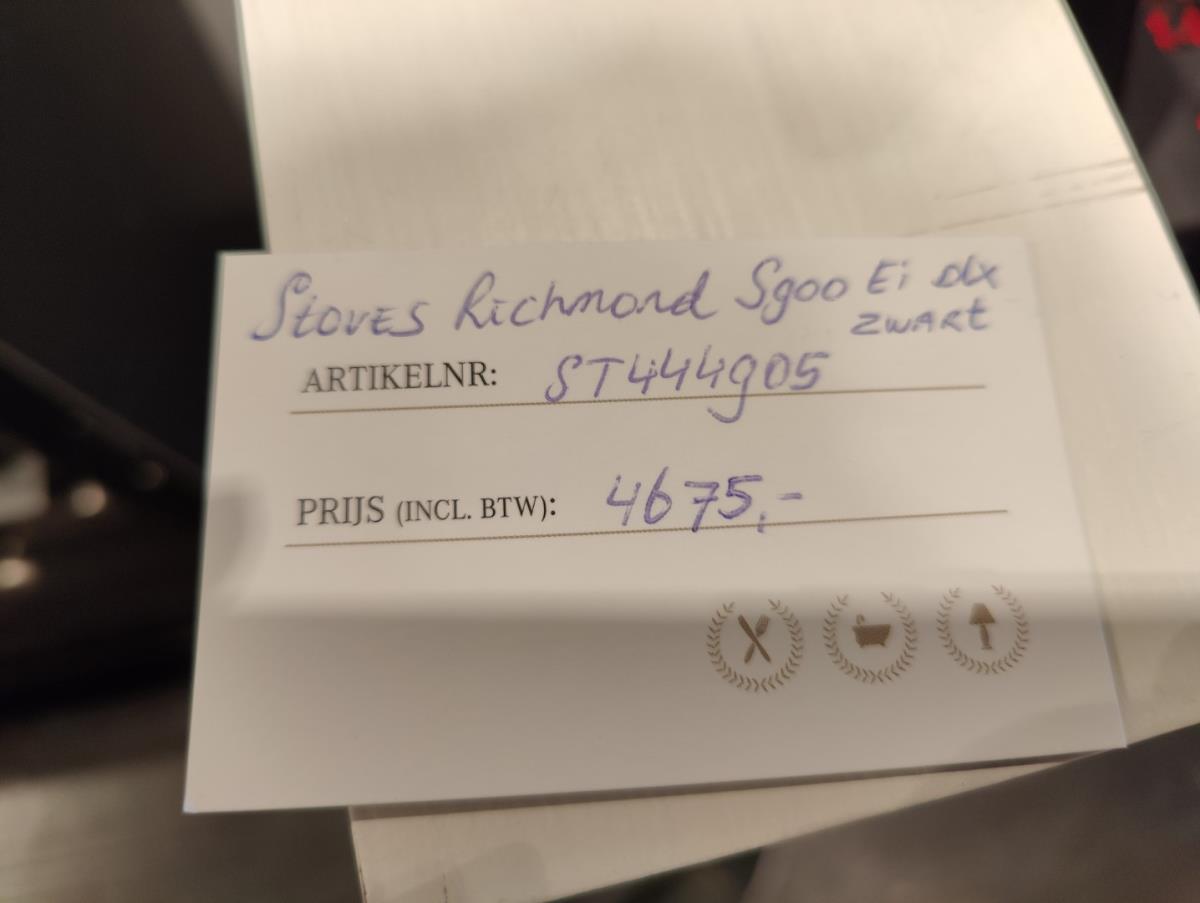 Stoves Richmond S900 Ei dlx
zwart
ARTIKELNR: ST444905
PRIJS (INCL. BTW): 4675,-